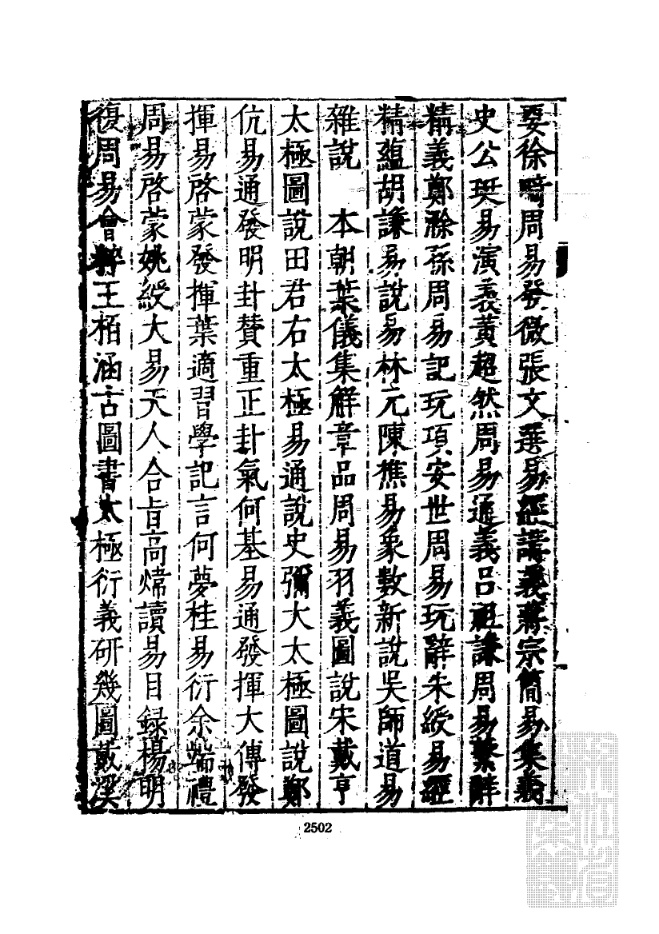 要徐畸周易發微張文選易經講義蔣宗簡易集義
史公珽易演義黃超然周易通義呂祖謙周易繫辭
精義鄭滁孫周易記玩項安世周易玩辭朱綬易經
精蘊胡謙易說易林元陳樵易象數新說吳師道易
雜說　本朝葉儀集解章品周易羽義圖說宋戴亨
太極圖說田君右太極易通說史彌大太極圖說鄭
伉易通發明卦贊重正卦氣何基易通發揮大傳發
揮易啓蒙發揮葉適習學記言何夢桂易衍余端禮
周易啓蒙姚綬大易天人合旨高㷂讀易目録楊明
復周易會粹王栢涵古圖書太極衍義研幾圖戴溪
2502